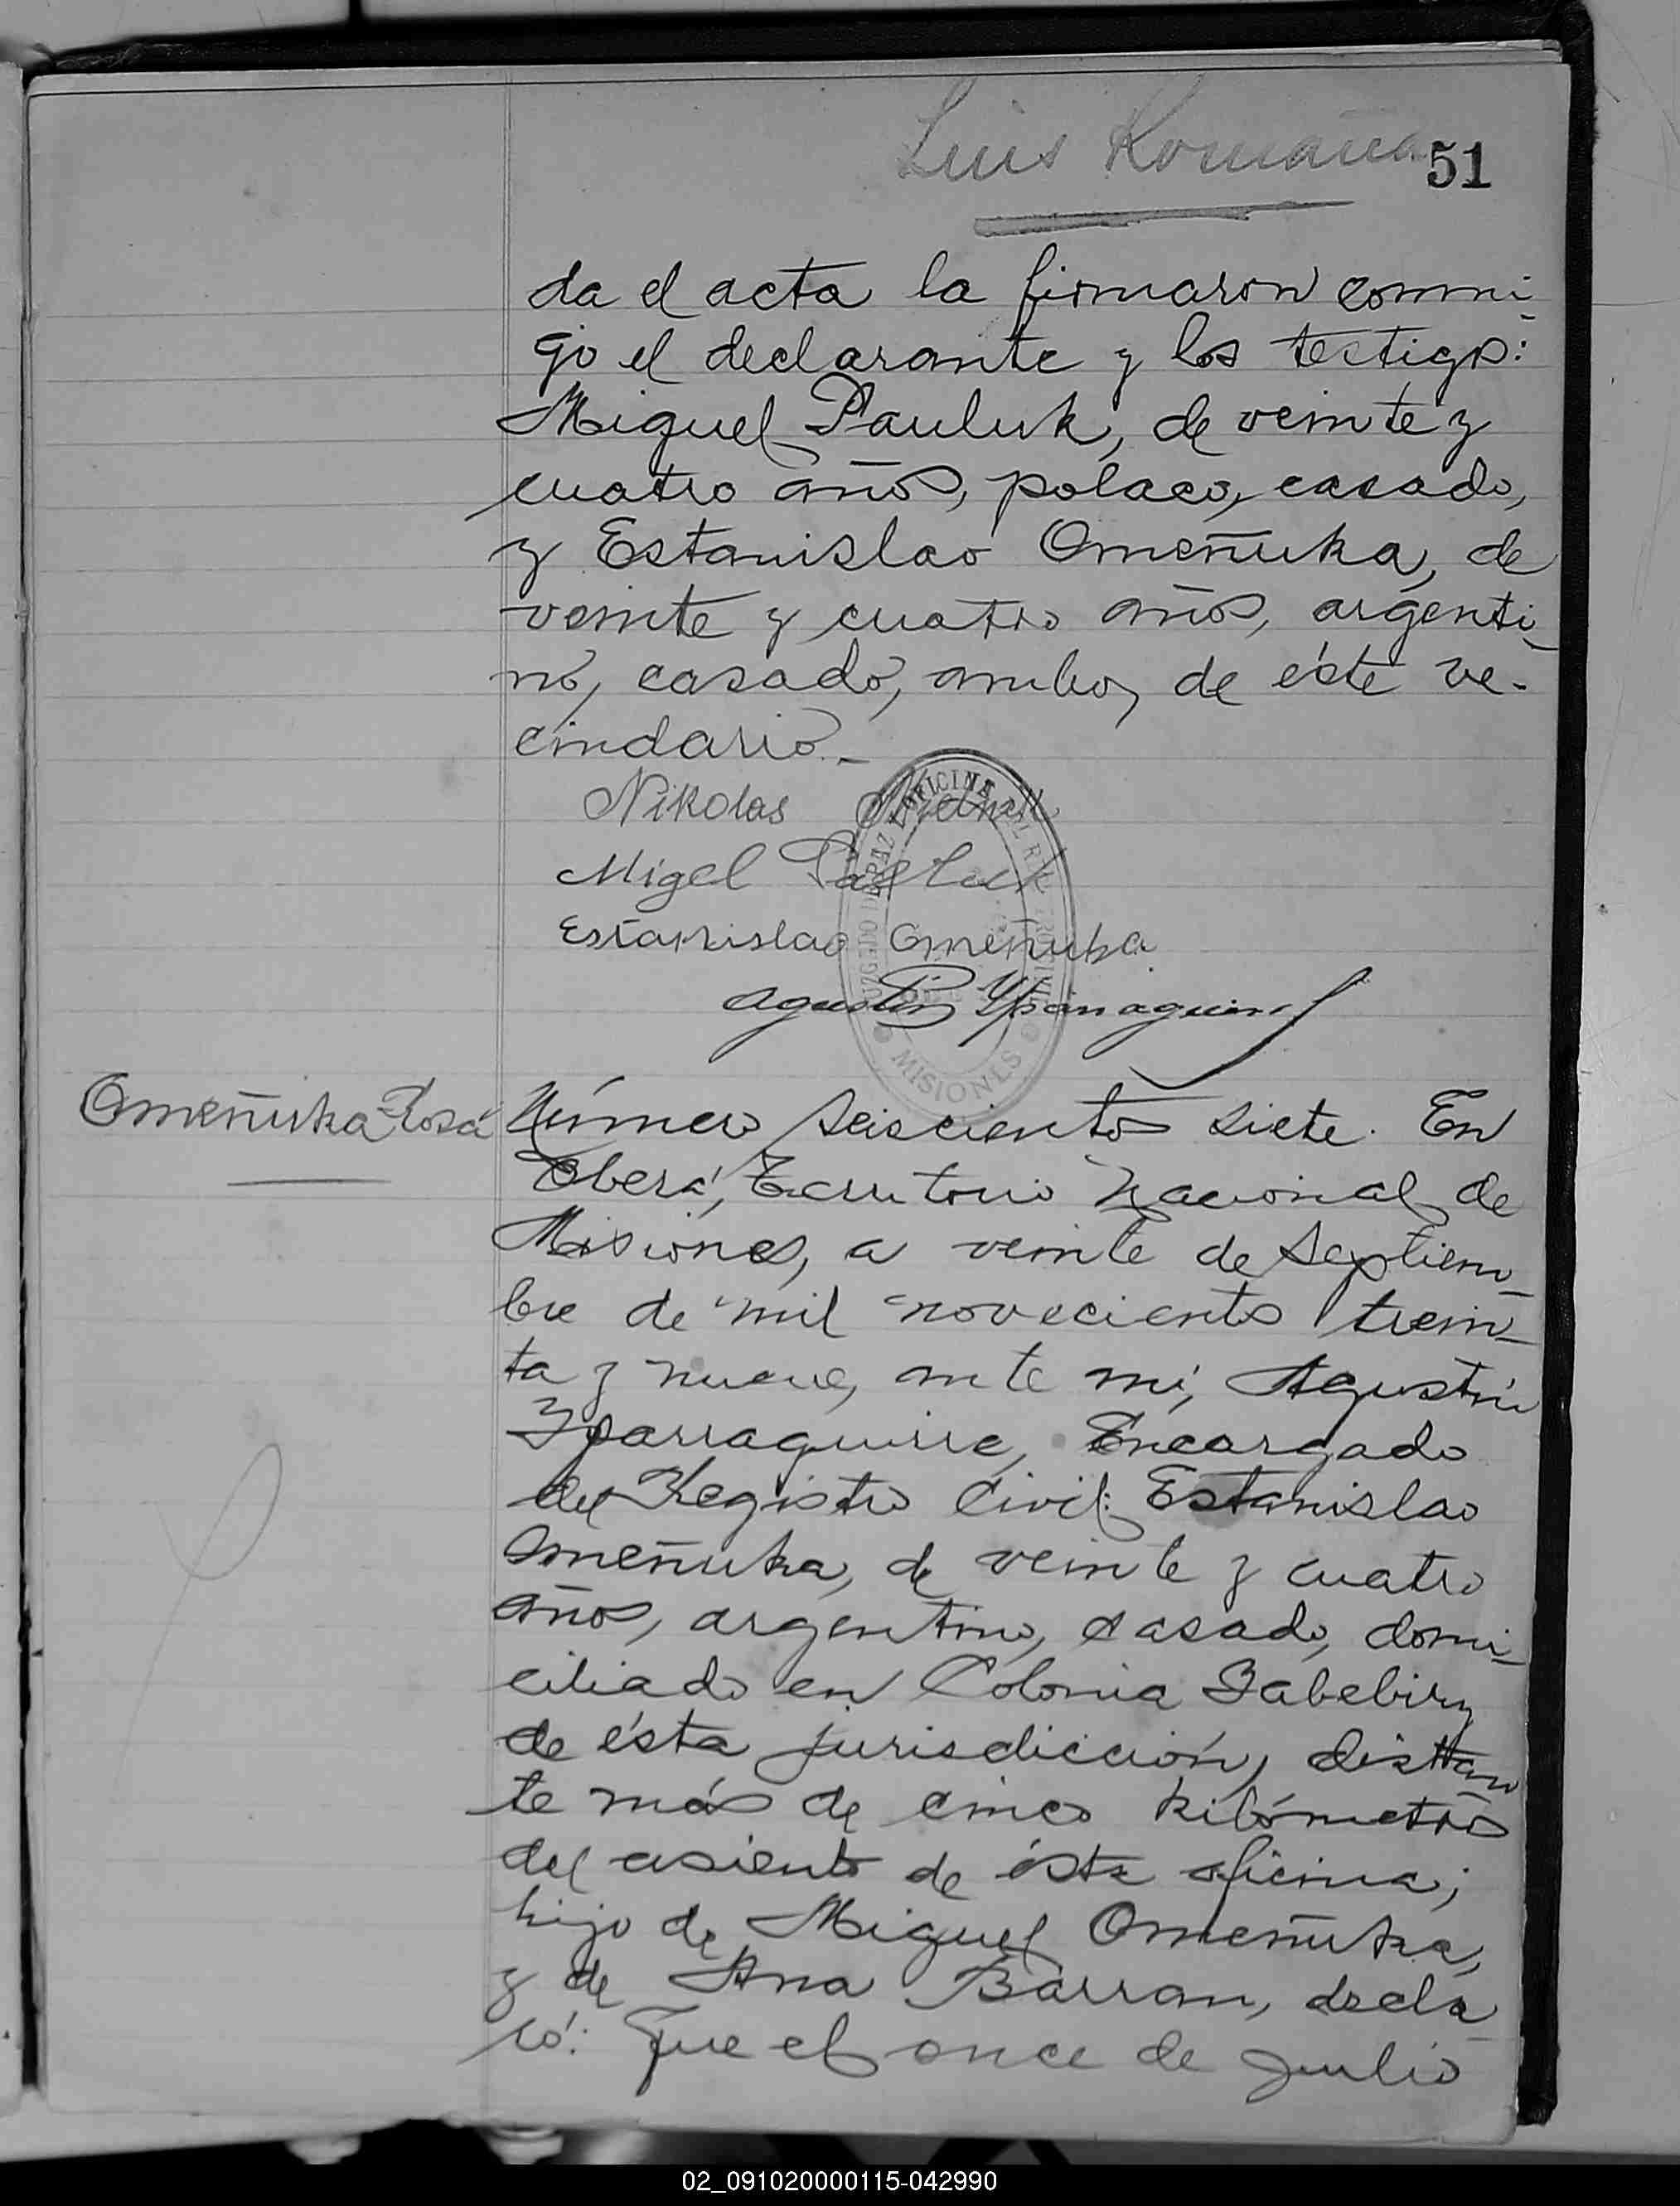 Luis Romaña
51
da el acta la firmaron conmi-
go el declarante y los testigos:
Miguel Pauluk, de veinte y
cuatro años, polaco, casado,
y Estanislao Omeñuka, de
veinte y cuatro años, argenti-
no, casado, ambos de éste ve-
cindario.-
Nikolas
Migel Pauluk
Estanislao Omeñuka
Agustin Yparraguirre
JUZGADO DE PAZ Y OFICINA DEL R
MISIONES
Omeñuka Rosa
Número seiscientos siete. En
Oberá, Territorio Nacional de
Misiones, a veinte de Septiem-
bre de mil novecientos trein-
ta y nueve, ante mí, Agustín
Yparraguirre, Encargado
del Registro Civil: Estanislao
Omeñuka, de veinte y cuatro
años, argentino, casado, domi-
ciliado en Colonia Yabebiry
de ésta jurisdicción, distan
te más de cinco kilómetros
del asiento de ésta oficina;
hijo de Miguel Omeñuka,
y de Ana Barran, decla-
ró: Que el once de Julio
02_091020000115-042990